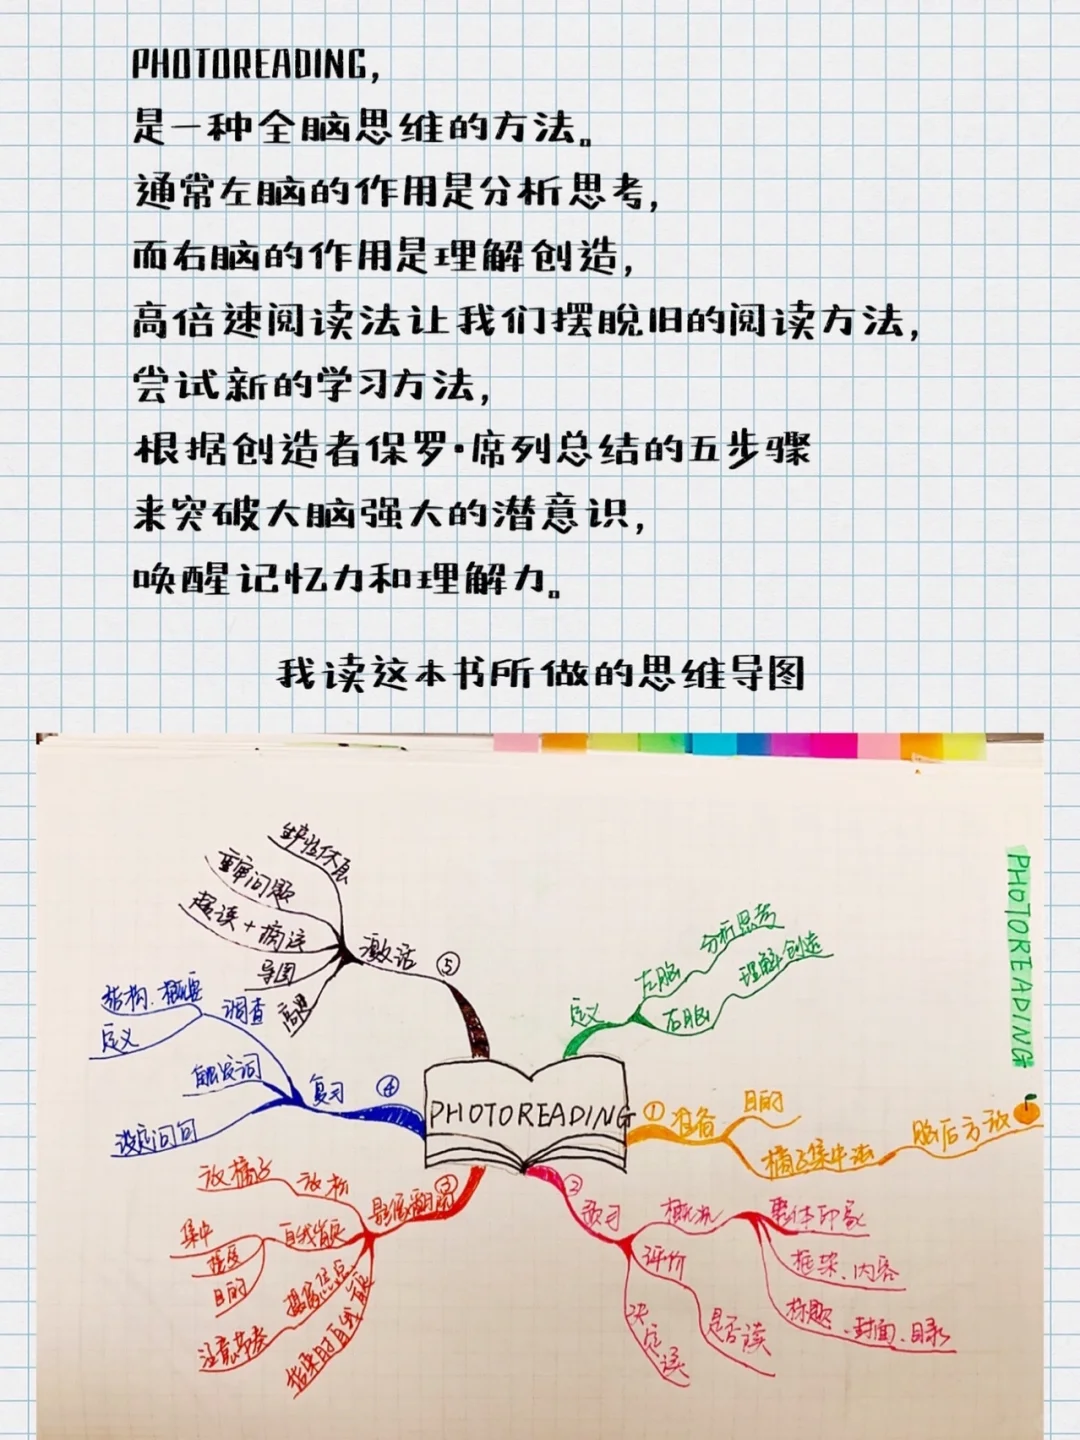 PHOTOREADING,
是一种全脑思维的方法。
通常左脑的作用是分析思考,
而右脑的作用是理解创造,
高倍速阅读法让我们摆脱旧的阅读方法,
尝试新的学习方法,
根据创造者保罗·席列总结的五步骤
来突破大脑强大的潜意识,
唤醒记忆力和理解力。
我读这本书所做的思维导图
PHOTOREADING
PHOTOREADING
定义
左脑
分析思考
右脑
理解创造
① 准备
目的
橘子集中法
脑后方放
② 预习
概况
整体印象
框架、内容
标题、封面、目录
评价
是否读
决定读
③ 影像翻阅
放松
放橘子
自我肯定
集中
速度
目的
注意节奏
结束时自我肯定
④ 复习
调查
结构、概要
定义
触发词
设定问句
⑤ 激活
生产性休息
重审问题
超读+摘读
导图
高速